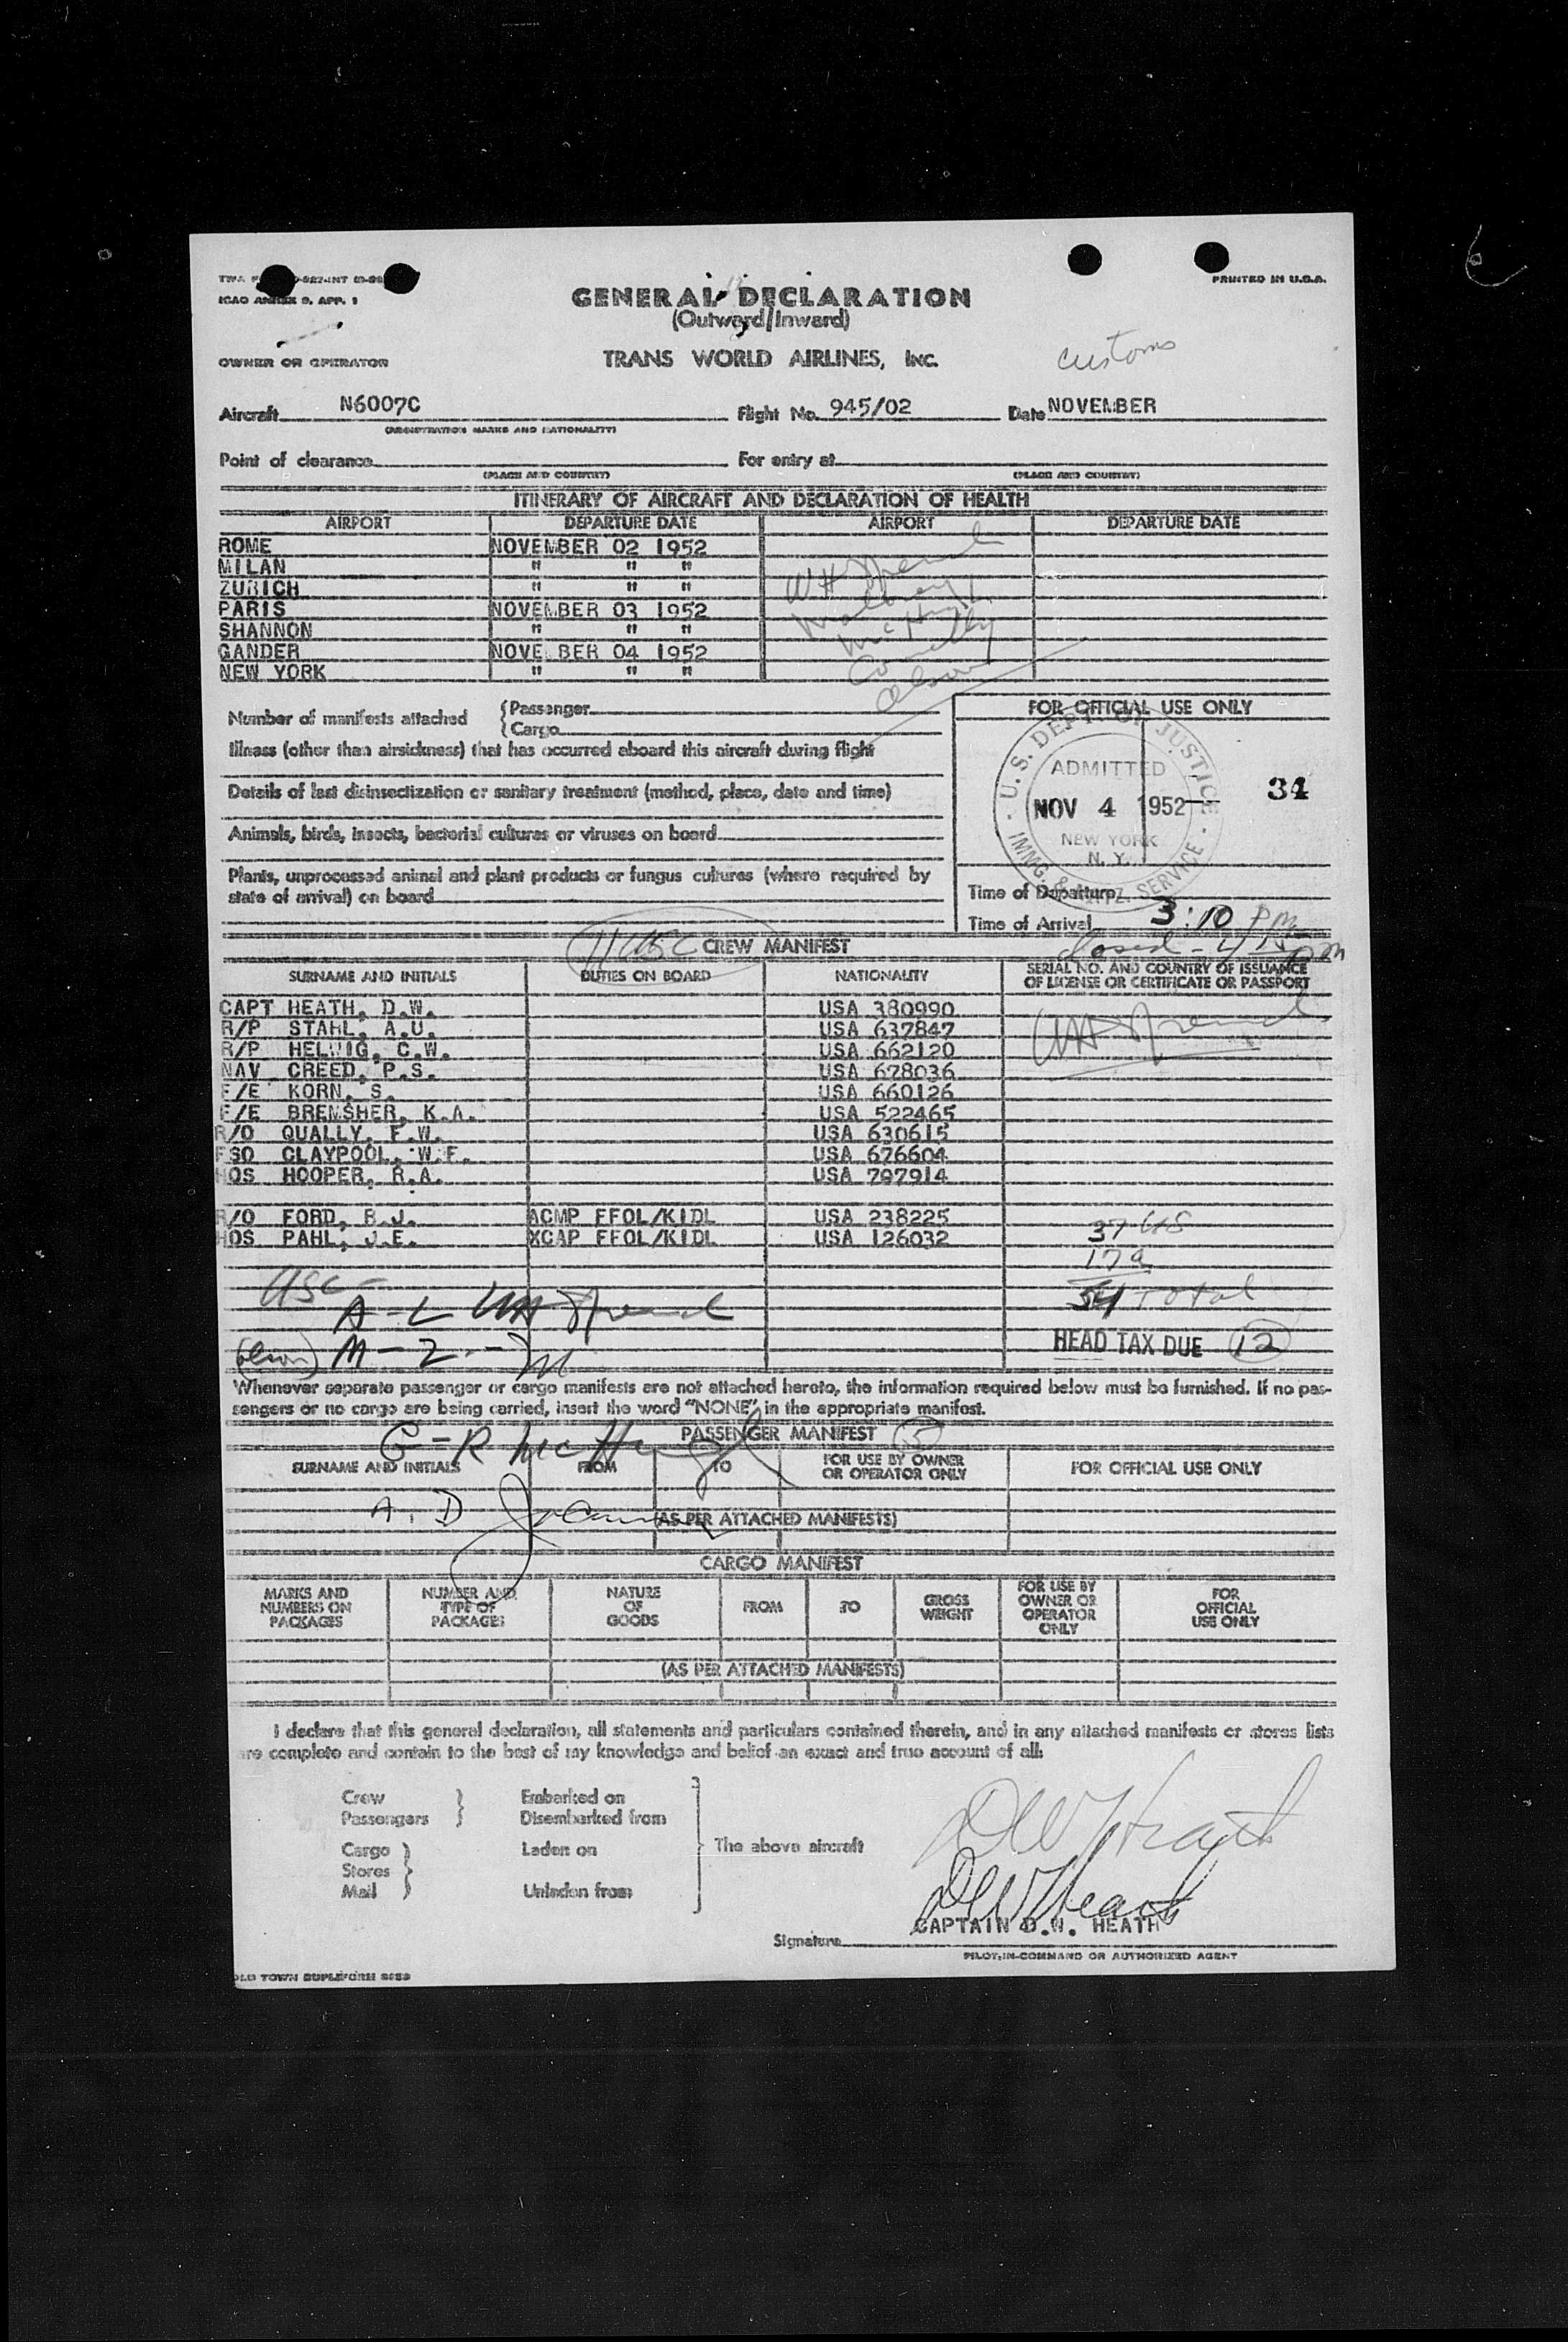 ICAO ANNEX 9, APP. 1
PRINTED IN U.S.A.
GENERAL DECLARATION
(Outward/Inward)
OWNER OR OPERATOR TRANS WORLD AIRLINES, INC. customs
Aircraft N6007C Flight No. 945/02 Date NOVEMBER
(REGISTRATION MARKS AND NATIONALITY)
Point of clearance For entry at
(PLACE AND COUNTRY) (PLACE AND COUNTRY)
ITINERARY OF AIRCRAFT AND DECLARATION OF HEALTH
AIRPORT DEPARTURE DATE AIRPORT DEPARTURE DATE
ROME NOVEMBER 02 1952
MILAN " " "
ZURICH " " "
PARIS NOVEMBER 03 1952
SHANNON " " "
GANDER NOVE BER 04 1952
NEW YORK " " "
Number of manifests attached {Passenger
{Cargo
FOR OFFICIAL USE ONLY
Illness (other than airsickness) that has occurred aboard this aircraft during flight
Details of last disinsectization or sanitary treatment (method, place, date and time)
Animals, birds, insects, bacterial cultures or viruses on board
Plants, unprocessed animal and plant products or fungus cultures (where required by
state of arrival) on board
U.S. DEPT. OF JUSTICE
ADMITTED
NOV 4 1952
NEW YORK
N. Y.
IMMG. & NATZ. SERVICE
34
Time of Departure
Time of Arrival 3:10 pm
closed - 4 15 pm
11 USC CREW MANIFEST
SURNAME AND INITIALS DUTIES ON BOARD NATIONALITY SERIAL NO. AND COUNTRY OF ISSUANCE
OF LICENSE OR CERTIFICATE OR PASSPORT
CAPT HEATH, D.W. USA 380990
R/P STAHL, A.U. USA 637847
R/P HELWIG, C.W. USA 662120
NAV CREED, P.S. USA 678036
F/E KORN, S. USA 660126
F/E BREMSHER, K.A. USA 522465
R/O QUALLY, F.W. USA 630615
FSO CLAYPOOL, W.F. USA 676604
HOS HOOPER, R.A. USA 797914
R/O FORD, B.J. ACMP FFOL/KIDL USA 238225
HOS PAHL, J.E. XCAP FFOL/KIDL USA 126032
37 US
17 a
54 Total
USC
A - L
M - Z
HEAD TAX DUE 12
Whenever separate passenger or cargo manifests are not attached hereto, the information required below must be furnished. If no pas-
sengers or no cargo are being carried, insert the word "NONE" in the appropriate manifest.
G-R McHugh
PASSENGER MANIFEST
SURNAME AND INITIALS FROM TO FOR USE BY OWNER
OR OPERATOR ONLY FOR OFFICIAL USE ONLY
A. D
(AS PER ATTACHED MANIFESTS)
CARGO MANIFEST
MARKS AND
NUMBERS ON
PACKAGES
NUMBER AND
TYPE OF
PACKAGES
NATURE
OF
GOODS
FROM
TO
GROSS
WEIGHT
FOR USE BY
OWNER OR
OPERATOR
ONLY
FOR
OFFICIAL
USE ONLY
(AS PER ATTACHED MANIFESTS)
I declare that this general declaration, all statements and particulars contained therein, and in any attached manifests or stores lists
are complete and contain to the best of my knowledge and belief an exact and true account of all:
Crew Embarked on
Passengers Disembarked from
Cargo Laden on The above aircraft
Stores
Mail Unladen from
DW Heath
DW Heath
CAPTAIN D.W. HEATH
Signature
PILOT-IN-COMMAND OR AUTHORIZED AGENT